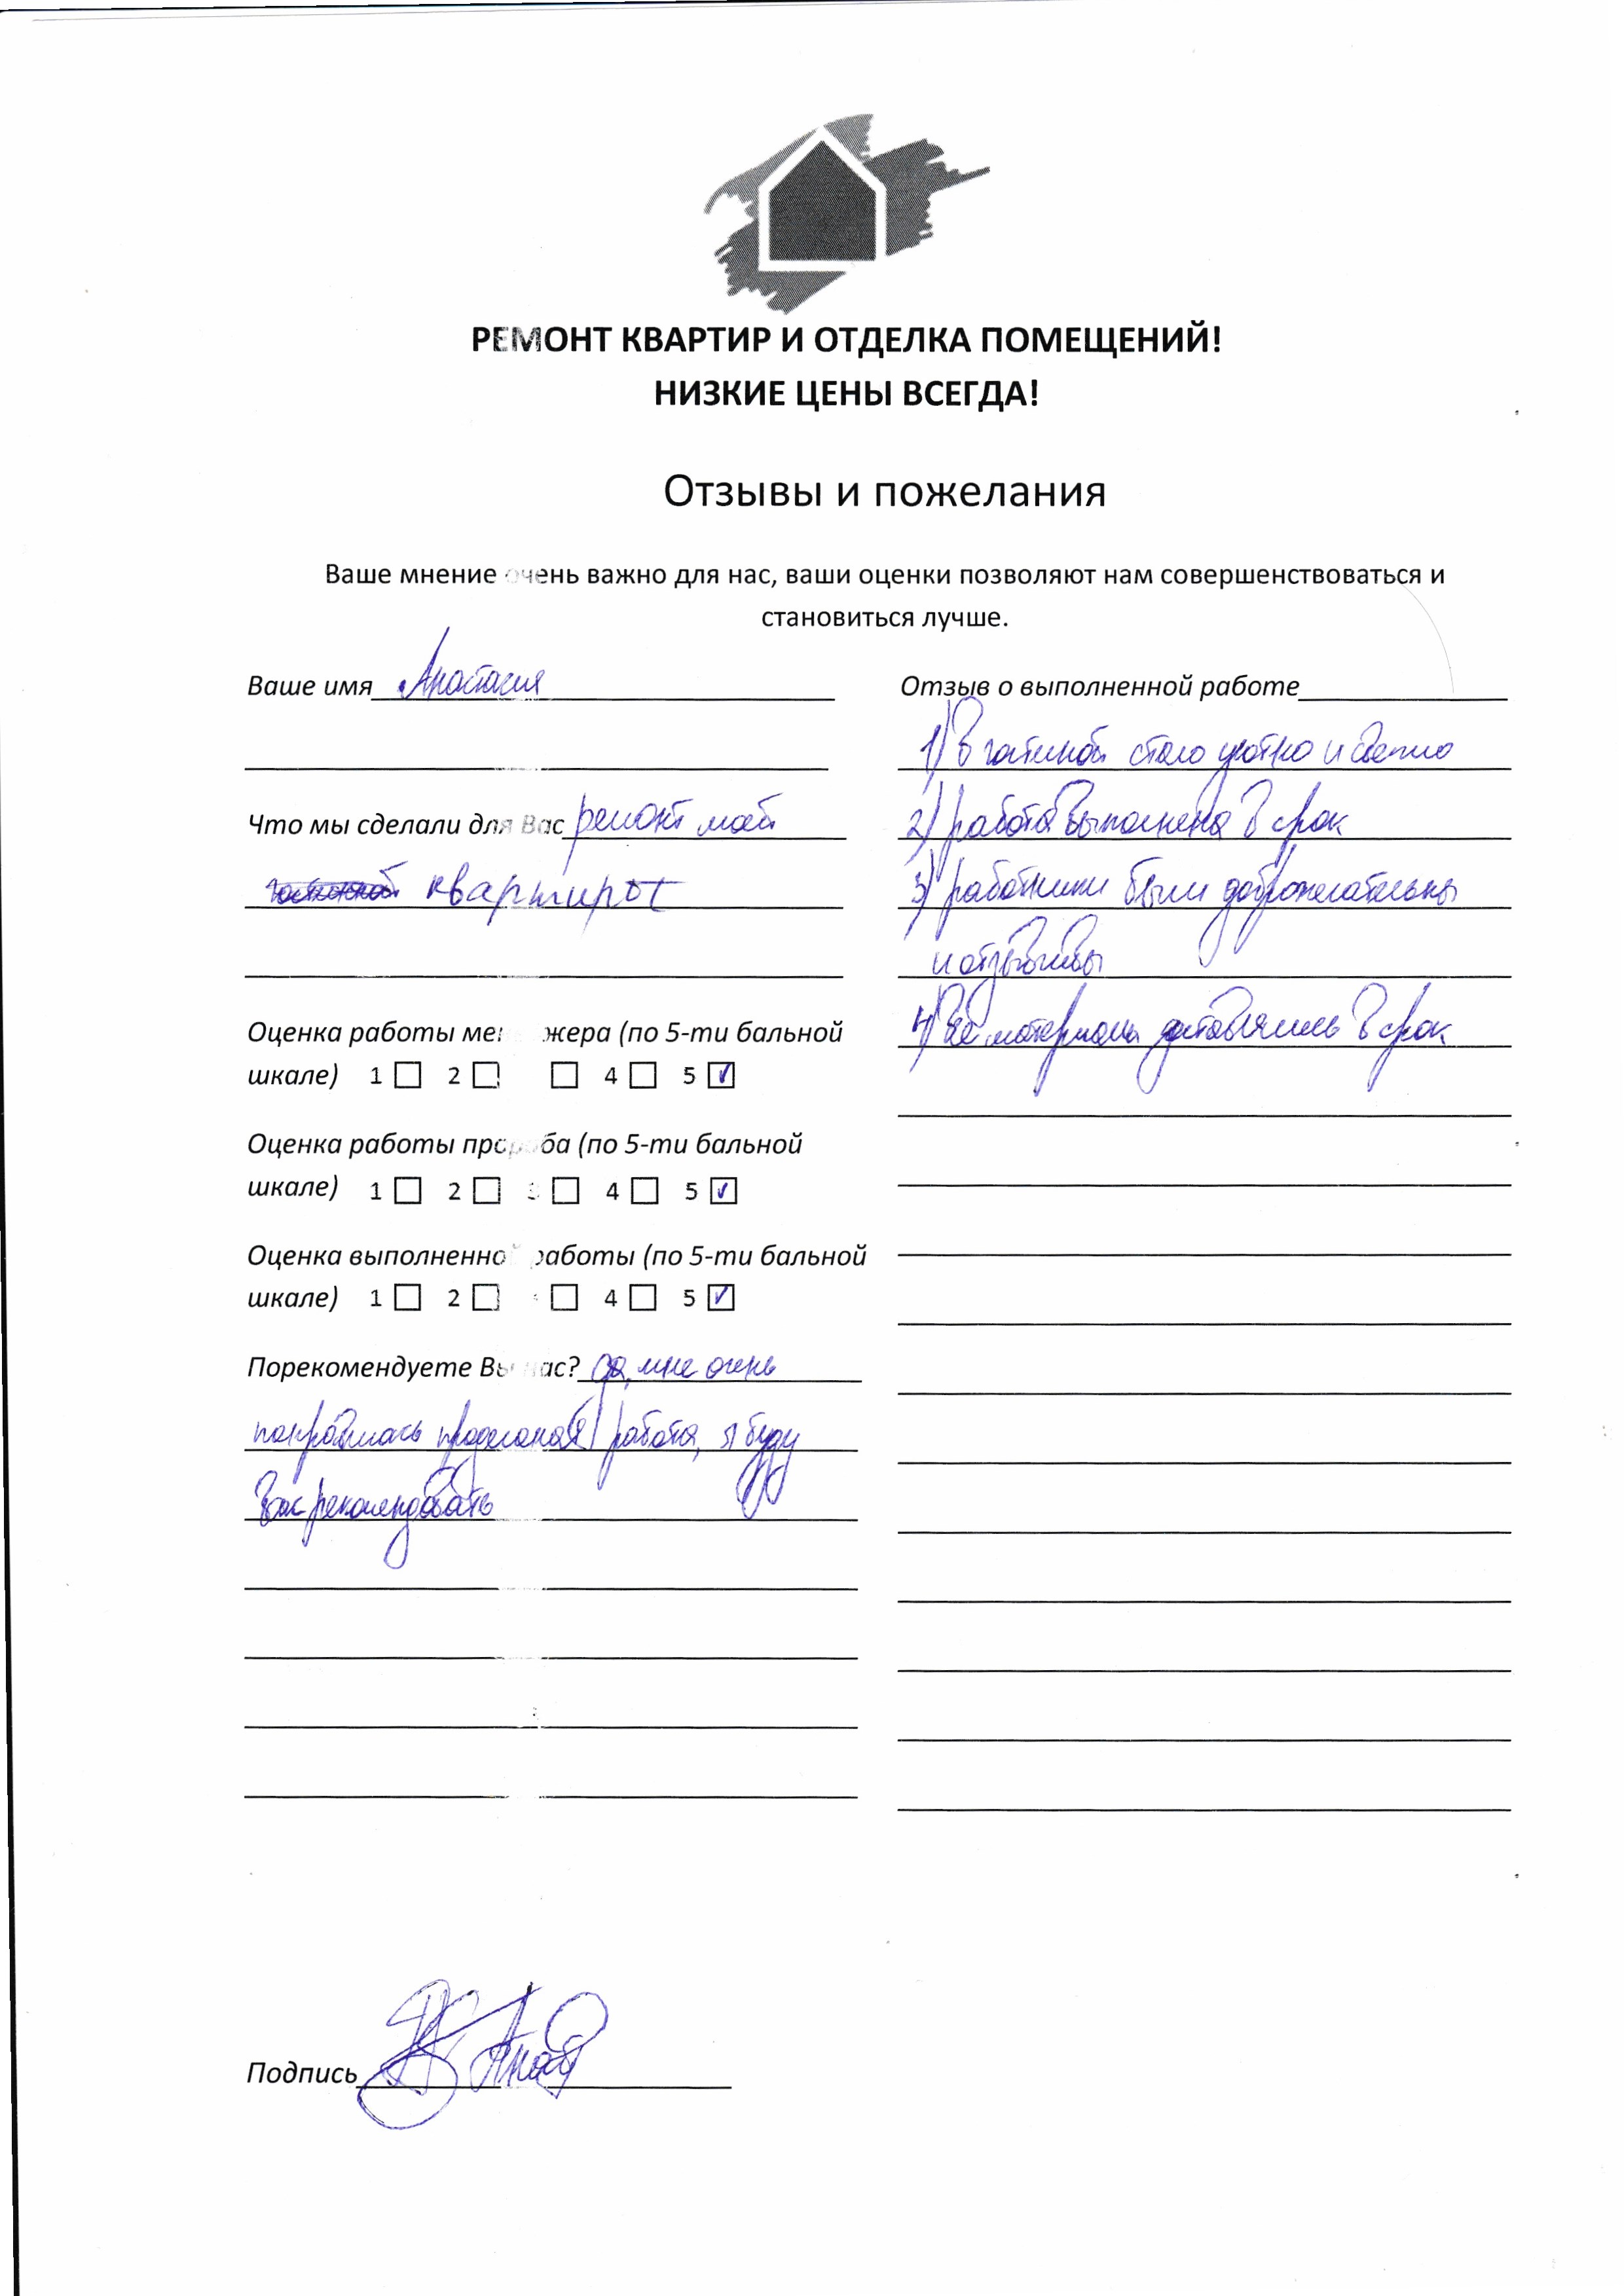 РЕМОНТ КВАРТИР И ОТДЕЛКА ПОМЕЩЕНИЙ!
НИЗКИЕ ЦЕНЫ ВСЕГДА!
Отзывы и пожелания
Ваше мнение очень важно для нас, ваши оценки позволяют нам совершенствоваться и
становиться лучше.
Ваше имя Анастасия
Что мы сделали для Вас ремонт моей
гостиной квартиры
Оценка работы менеджера (по 5-ти бальной
шкале) 1 ☐ 2 ☐ ☐ 4 ☐ 5 ☑
Оценка работы прораба (по 5-ти бальной
шкале) 1 ☐ 2 ☐ 3 ☐ 4 ☐ 5 ☑
Оценка выполненной работы (по 5-ти бальной
шкале) 1 ☐ 2 ☐ ☐ 4 ☐ 5 ☑
Порекомендуете Вы нас? да, мне очень
понравилась проделаная работа, я буду
Вас рекомендовать
Отзыв о выполненной работе
1) В гостиной стало уютно и светло
2) работа выполнена в срок
3) работники были доброжелательны
и отзывчивы
4) Все материалы доставлялись в срок
Подпись